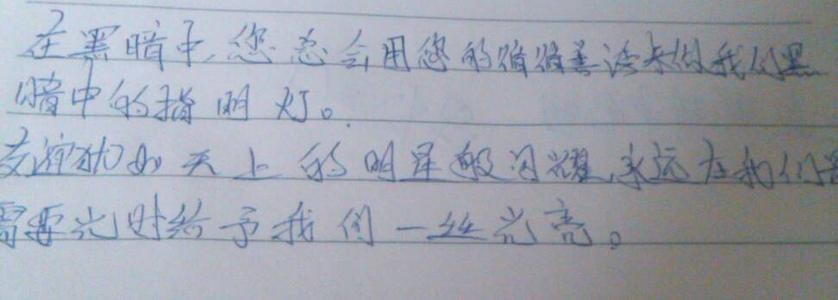 在黑暗中,您总会用您的循循善诱来做我们黑
暗中的指明灯。
友谊犹如天上的明星般闪耀,永远在我们
需要光时给予我们一丝光亮。